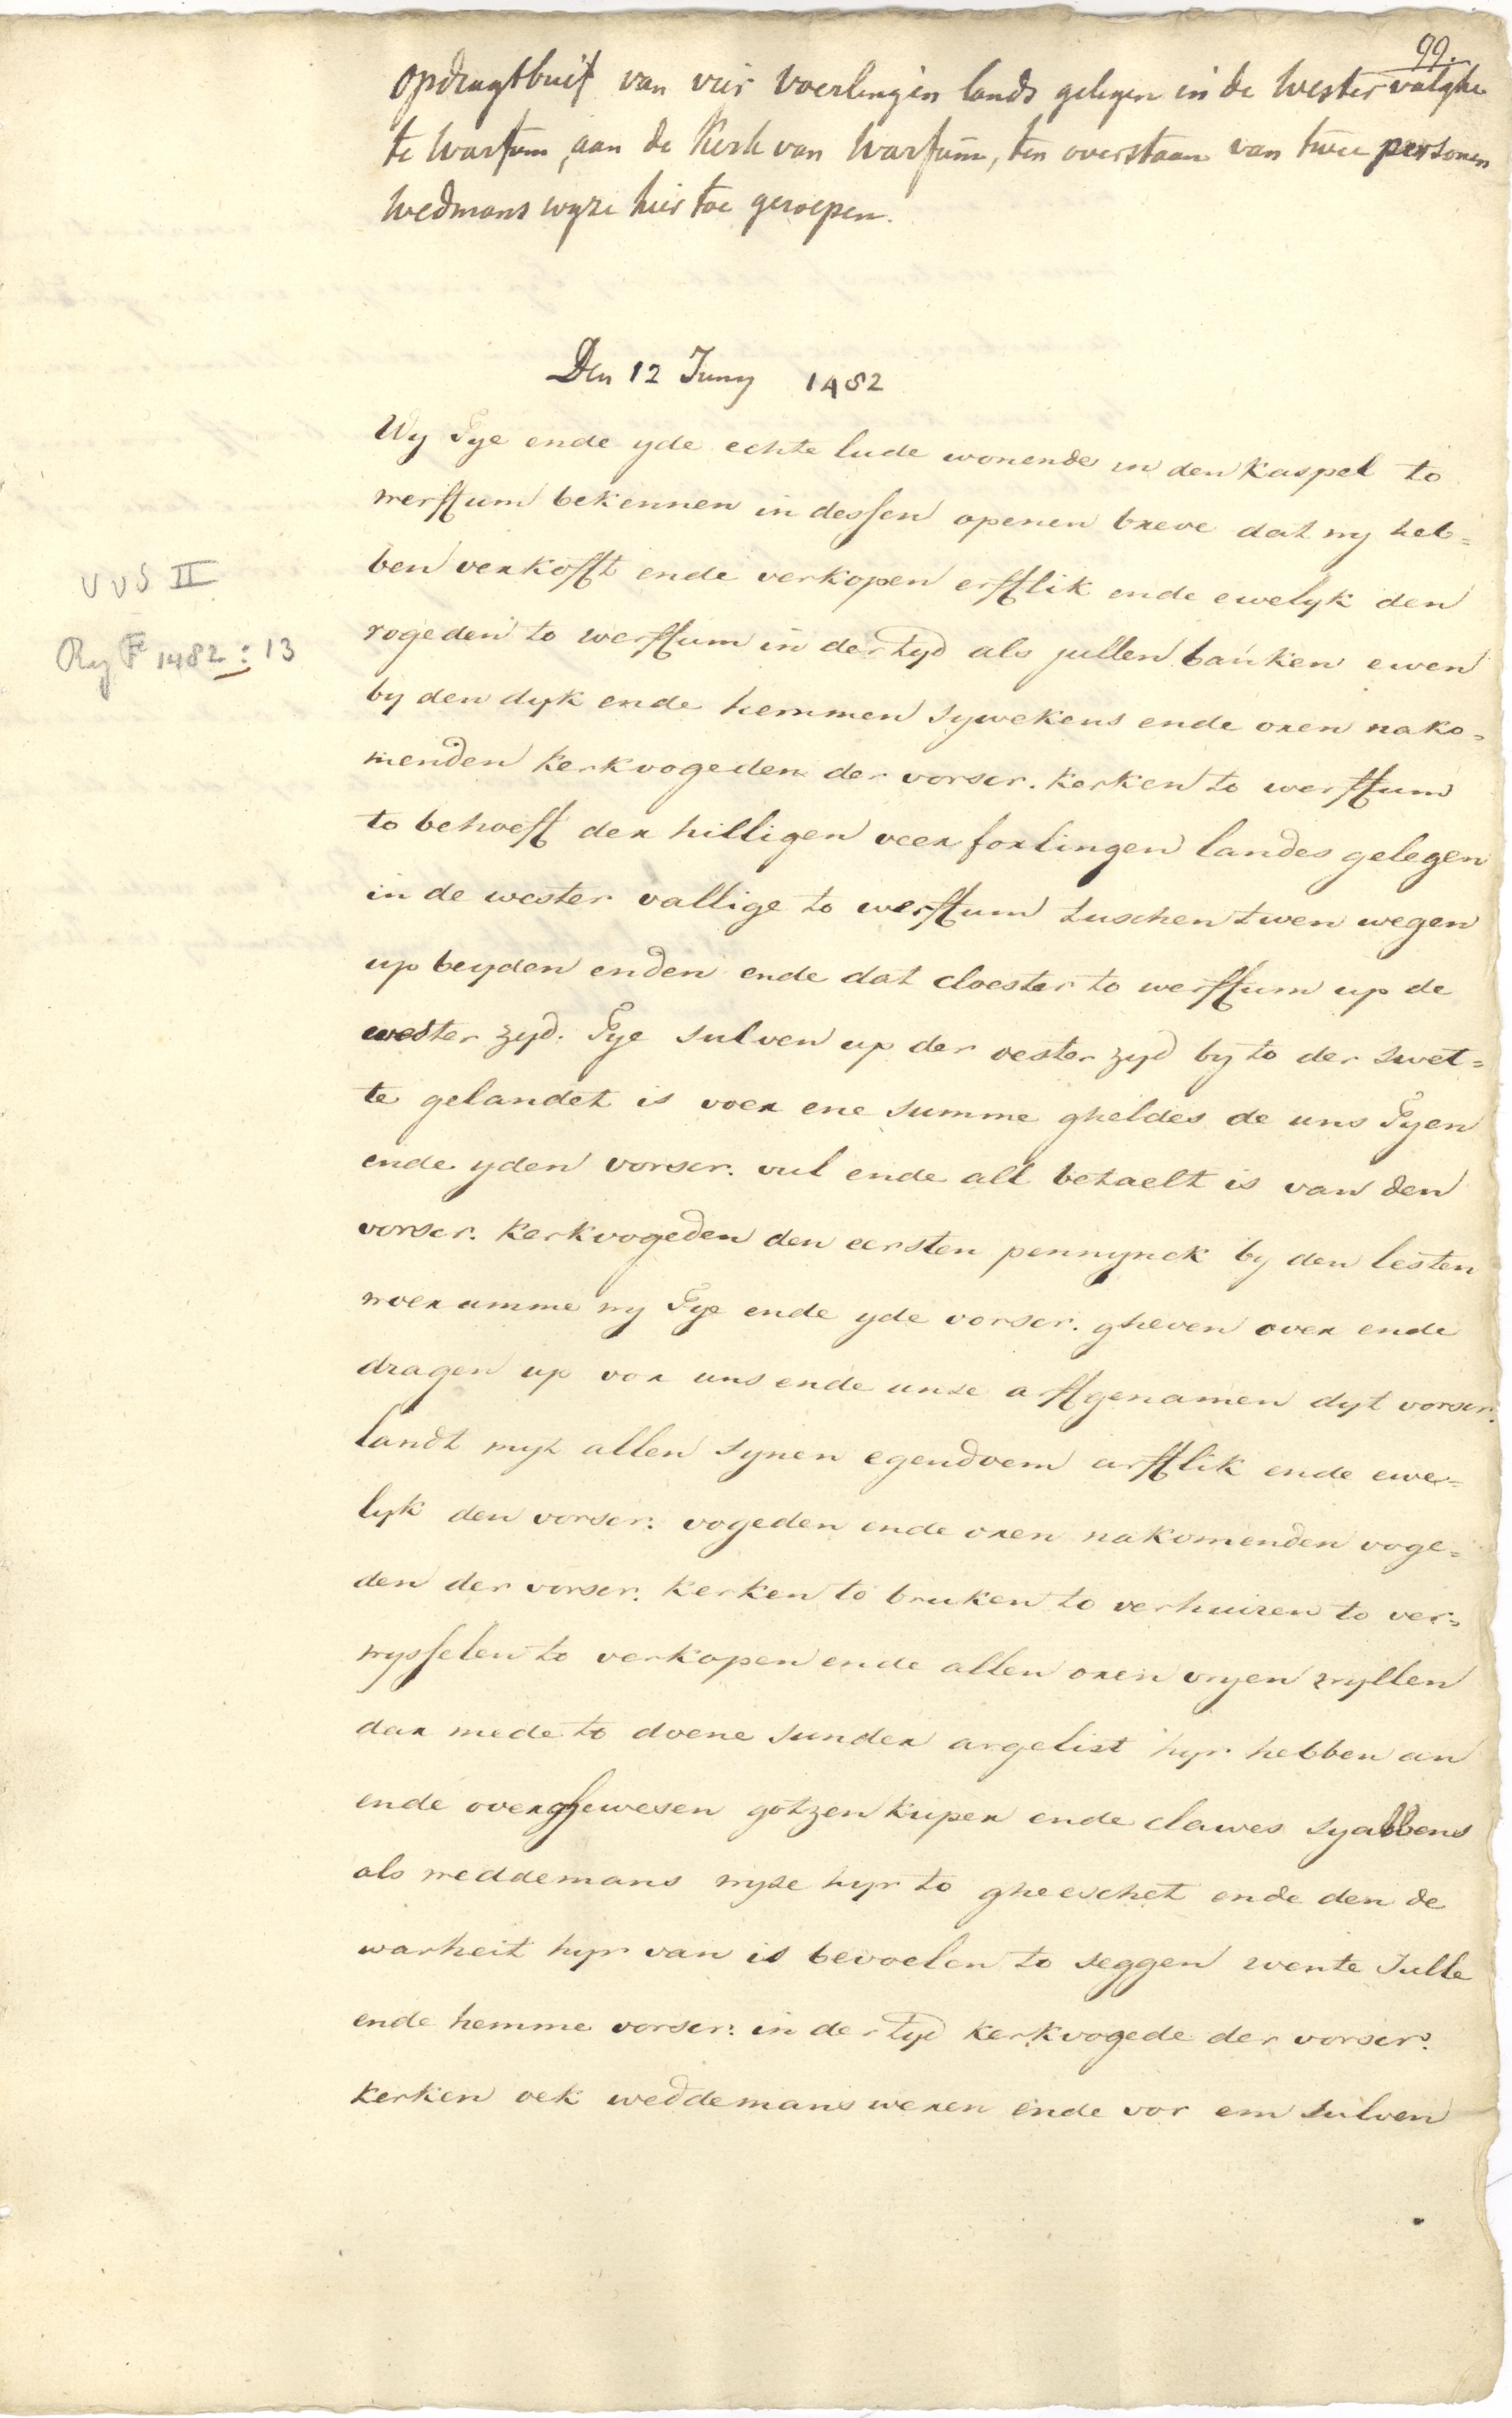 99.
Opdragtbrief van vier voerlingen lands gelegen in de Wester valghe
te Warfum, aan de Kerk van Warfum, ten overstaan van twee personen
wedmans wyze hier toe geroepen.
Den 12 Juny 1482
Wy Tye ende yde echte lude wonende in den kaspel to
werffum bekennen in dessen openen breve dat wy heb=
ben verkofft ende verkopen erfflik ende ewelyk den
vogeden to werffum in der tyd als jullen banken ewen
by den dyk ende hemmen sywekens ende oren nako=
menden kerkvogeden der vorscr. kerken to werffum
to behoeff der hilligen veer forlingen landes gelegen
in de wester vallige to werffum tuschen twen wegen
up beyden enden ende dat cloester to werffum up de
wester zyd. Tye sulven up der oester zyd by to der swet=
te gelandet is voer ene summe gheldes de uns Tyen
ende yden vorscr. vul ende all betaelt is van den
vorscr. kerkvogeden den eersten pennynck by den lesten
woer umme wy Tye ende yde vorscr. gheven over ende
dragen up vor uns ende unse affgenamen dyt vorscr.
landt myt allen synen egendoem arfflik ende ewe=
lyk den vorscr. vogeden ende oren nakomenden voge=
den der vorscr. kerken to bruken to verhuiren to ver=
wysselen to verkopen ende allen oren vryen wyllen
dar mede to doene sunder argelist hyr hebben an
ende over ghewesen gotzen kuper ende clawes syabbens
als weddemans wyse hyr to gheeschet ende den de
warheit hyr van is bevoelen to seggen wente Julle
ende hemme vorscr. in der tyd kerkvogede der vorscr.
kerken oek weddemans weren ende vor em sulven
VVS II
Reg F 1482 : 13